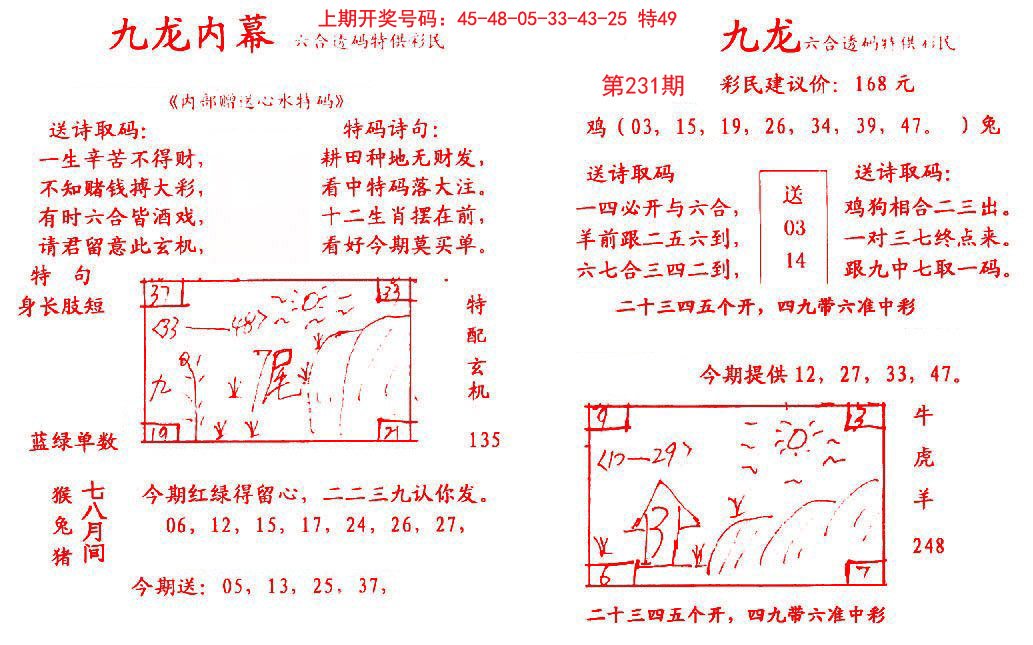 上期开奖号码：45-48-05-33-43-25 特49
九龙内幕 六合透码特供彩民
《内部赠送心水特码》
送诗取码：
一生辛苦不得财，
不知赌钱搏大彩，
有时六合皆酒戏，
请君留意此玄机，
特码诗句：
耕田种地无财发，
看中特码落大注。
十二生肖摆在前，
看好今期莫买单。
特 句
身长肢短
蓝绿单数
37
33
<33—48>
九
尾
19
21
特配玄机
135
猴兔猪
七八月间
今期红绿得留心，二二三九认你发。
06，12，15，17，24，26，27，
今期送：05，13，25，37，
九龙 六合透码特供彩民
第231期 彩民建议价：168元
鸡（03，15，19，26，34，39，47。 ）兔
送诗取码
一四必开与六合，
羊前跟二五六到，
六七合三四二到，
送
03
14
送诗取码：
鸡狗相合二三出。
一对三七终点来。
跟九中七取一码。
二十三四五个开，四九带六准中彩
今期提供12，27，33，47。
9
3
6
7
牛
虎
羊
248
二十三四五个开，四九带六准中彩